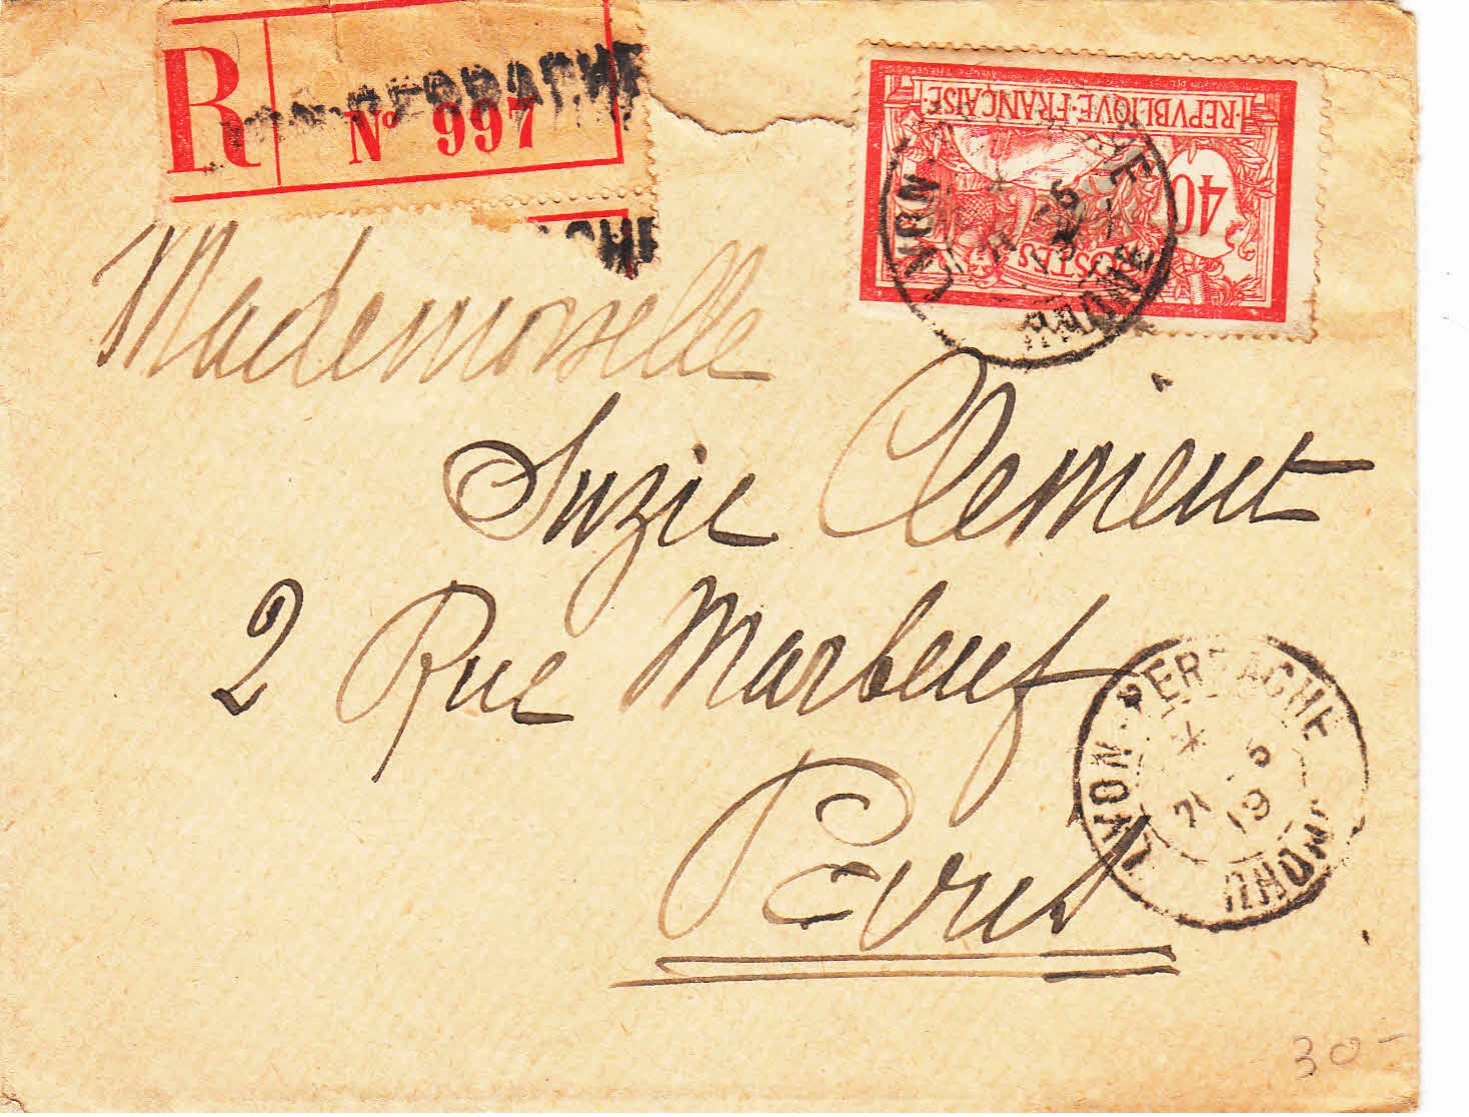 R
LYON-PERRACHE
Nº 997
CHE
REPVBLIQVE·FRANÇAISE
40
POSTES
LYON - RHONE
Mademoiselle
Suzie Clement
2 Rue Marbeuf
Paris
LYON-PERRACHE
* 5
19
RHONE
30-